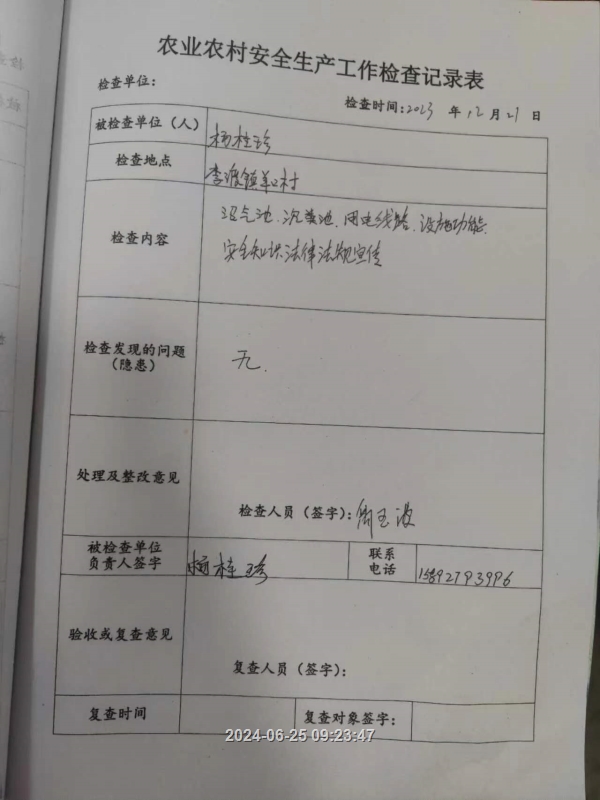 农业农村安全生产工作检查记录表
检查单位:
检查时间:2023 年 12 月 21 日
被检查单位(人) 杨桂珍
检查地点 李渡镇 村
检查内容 沼气池、沉粪池、用电线路、设施功能、
安全知识法律法规宣传
检查发现的问题
(隐患)
无.
处理及整改意见
检查人员(签字): 周玉波
被检查单位
负责人签字
杨桂珍
联系
电话
92793996
验收或复查意见
复查人员(签字):
复查时间 复查对象签字:
2024-06-25 09:23:47